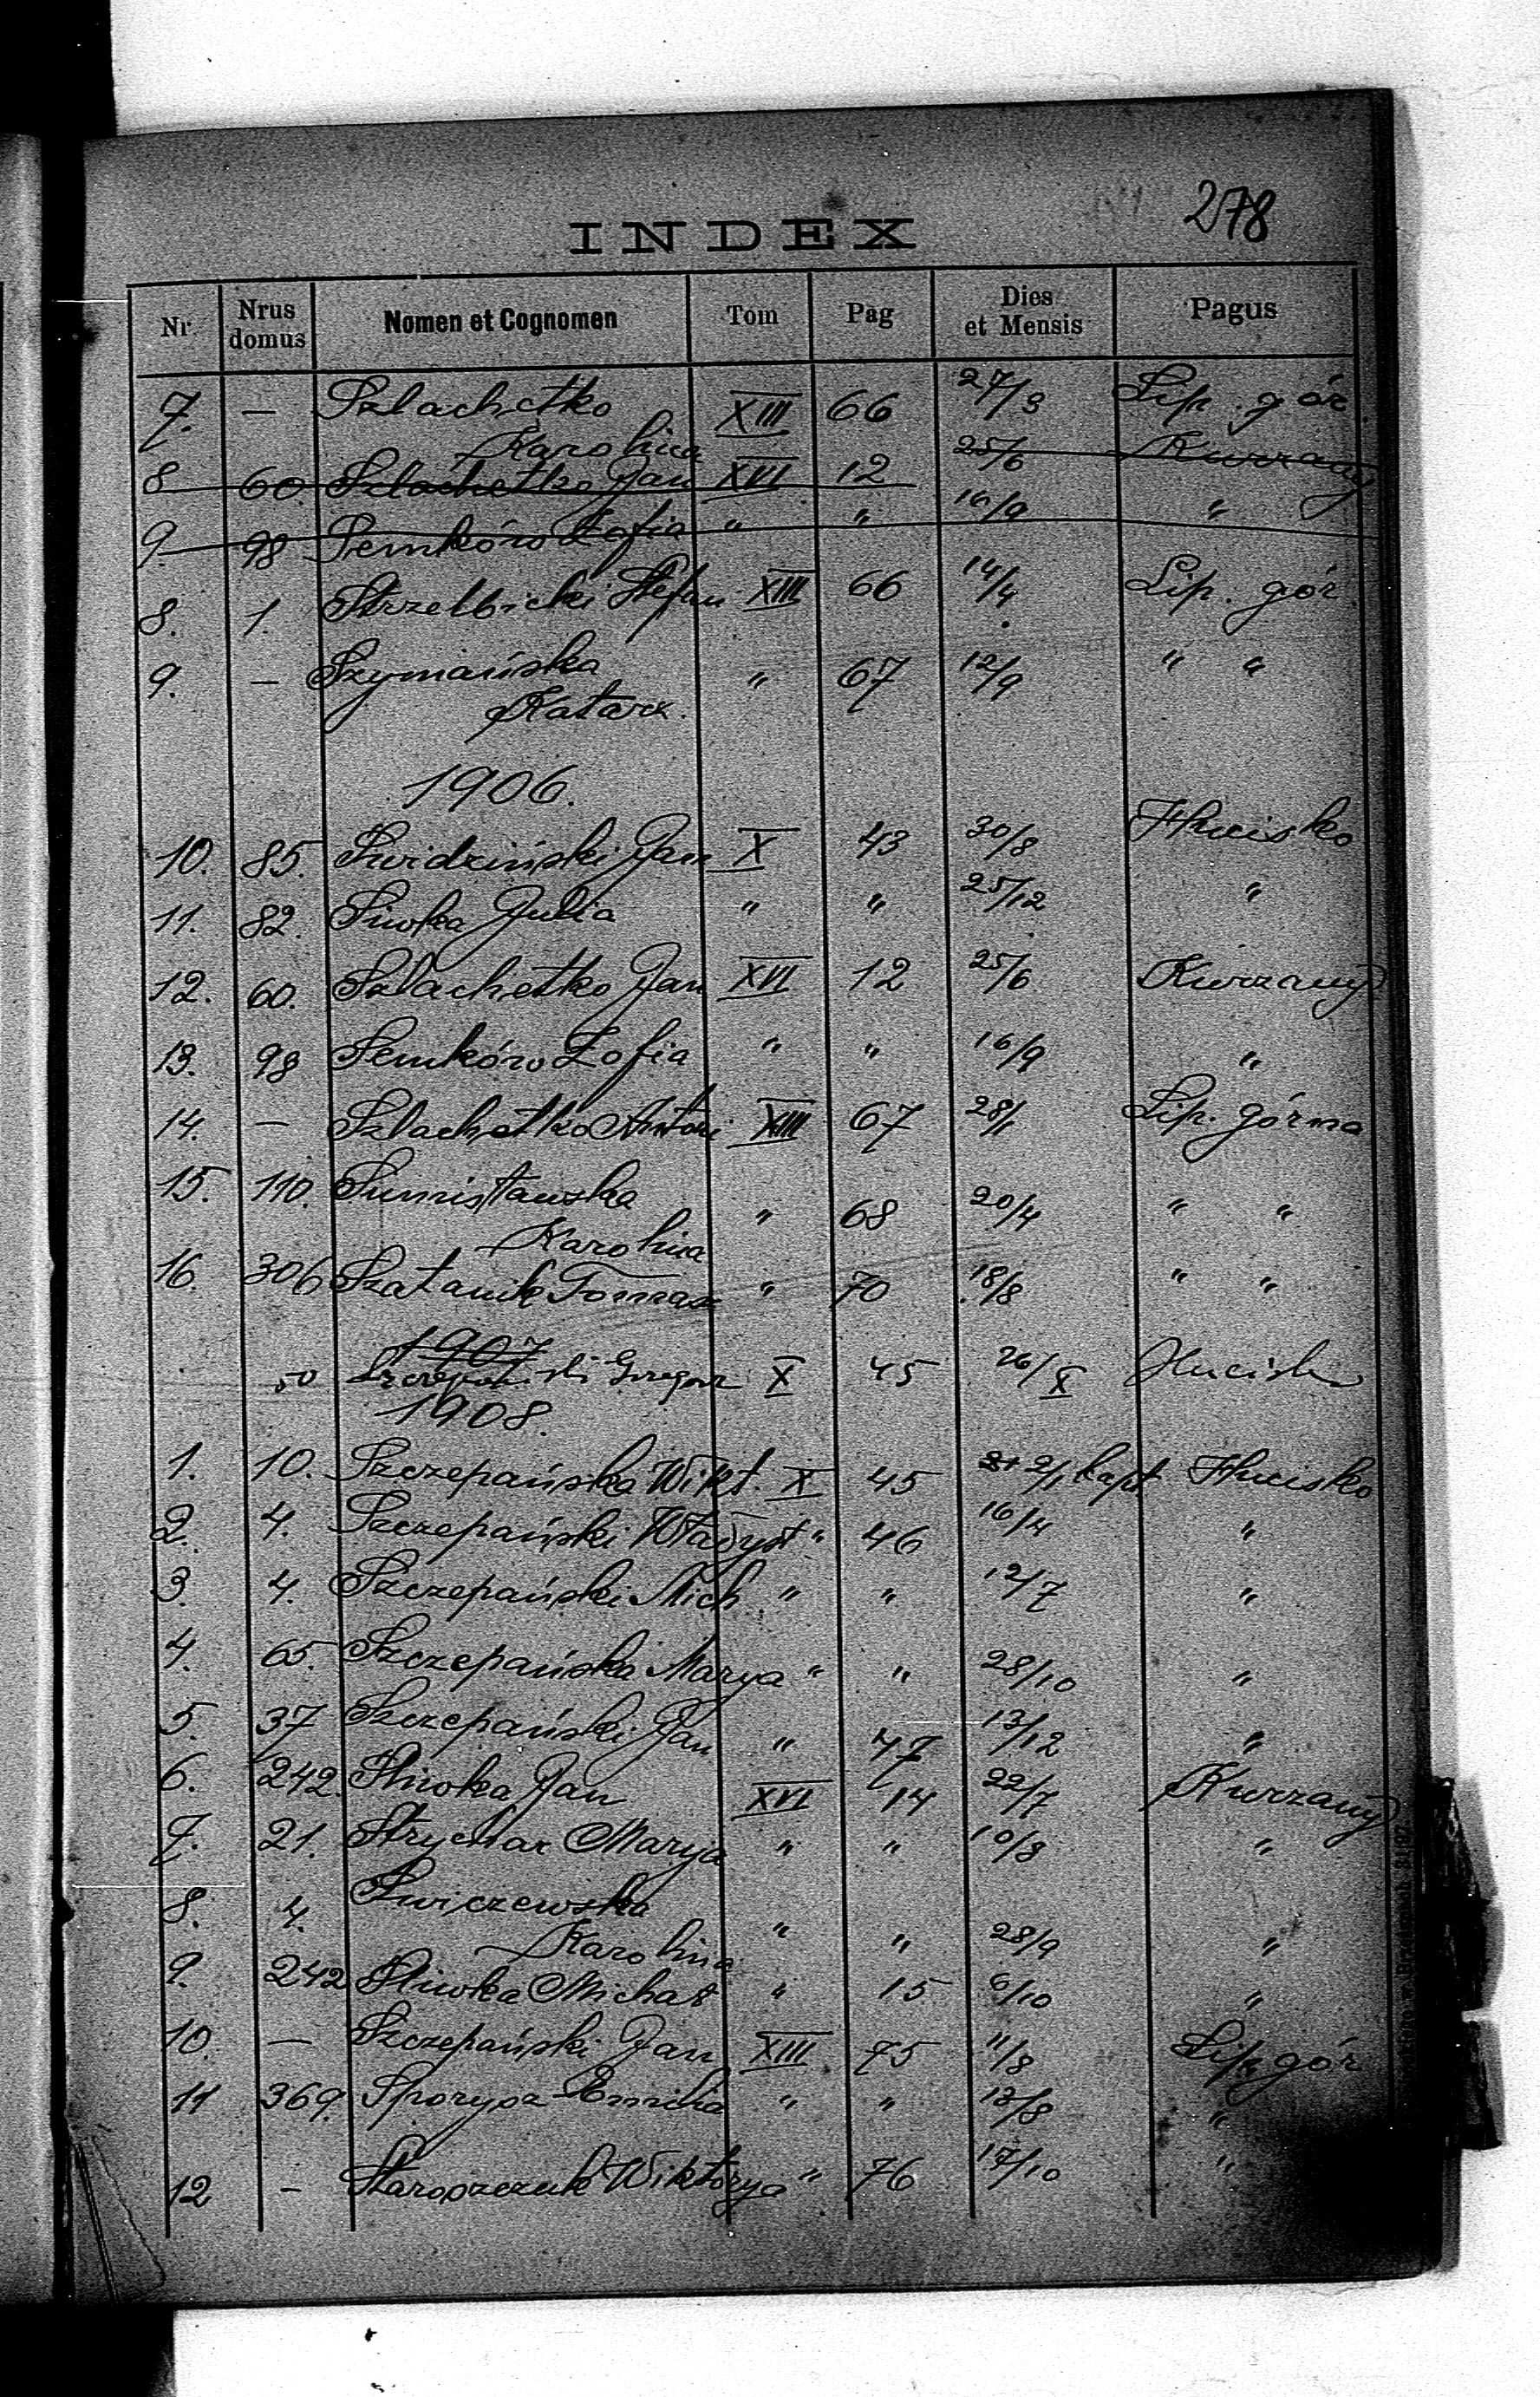 278
INDEX
Nr. Nrus domus Nomen et Cognomen Tom Pag Dies et Mensis Pagus
7. — Szlachetko XIII 66 27/3 Lip. gór.
Karolina
8 60 Szlachetko Jan XVI 12 25/6 Kurzany
9. 98 Semków Zofia " " 16/9 "
8. 1. Strzelbicki Stefan XIII 66 14/4 Lip. gór.
9. — Szymańska " 67 12/9 " "
Katarz.
1906.
10. 85. Świdziński Jan X 43 30/8 Hucisko
11. 82. Śliwka Julia " " 25/12 "
12. 60. Szlachetko Jan XVI 12 25/6 Kurzany
13. 98 Semków Zofia " " 16/9 "
14. — Szlachetko Antoni XIII 67 28/1 Lip. górna
15. 110. " 68 20/4 " "
Karolina
16. 306 Szatanik Tomasz " 70 18/8 " "
1907
50 X 45 26/X Hucisko
1908.
1. 10. Szczepańska Wikt. X 45 2/1 bapt. Hucisko
2. 4. Szczepański Władysł " 46 16/4 "
3. 4. Szczepański Mich. " " 12/7 "
4. 65. Szczepańska Marya " " 28/10 "
5. 37 Szczepański Jan " 47 13/12 "
6. 242. Śliwka Jan XVI 14 22/7 Kurzany
7. 21. Strychar Marya " " 10/8 "
8. 4. " " 28/9 "
Karolina
9. 242 Śliwka Michał " 15 6/10 "
10. — Szczepański Jan XIII 75 11/8 Lip. gór
11 369. Sporysz Emilia " " 13/8 "
12 — Starooszczuk Wiktorya " 76 17/10 "